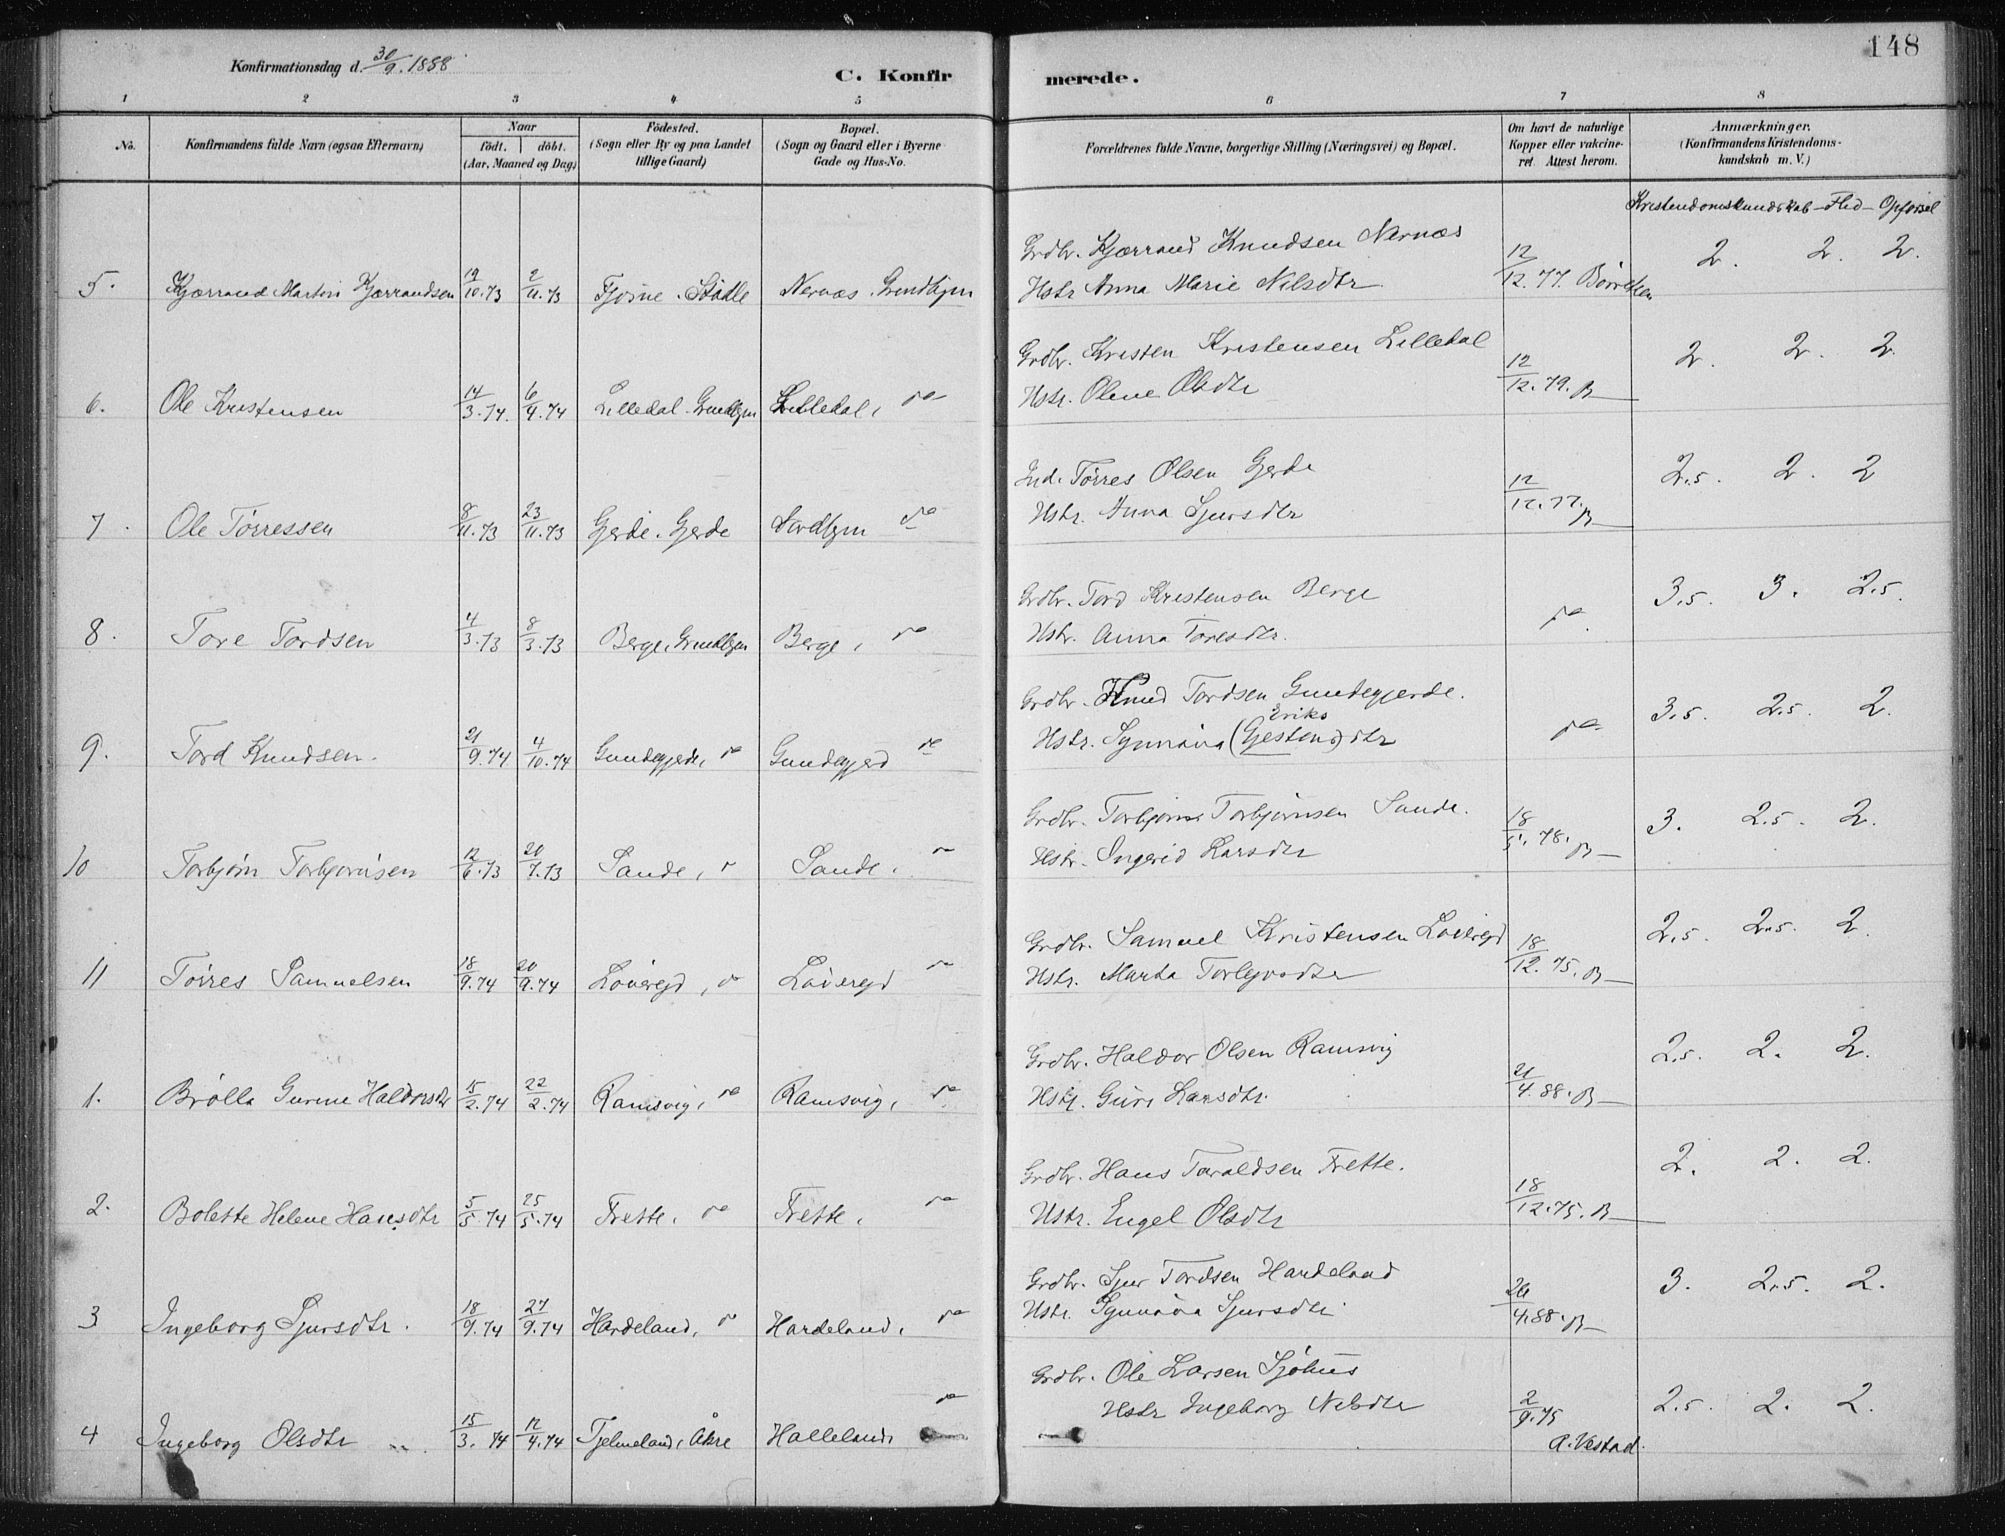 148
Konfirmationsdag d. 30/9. 1888
C. Konfirmerede.
1 2 3 4 5 6 7 8
No.
Konfirmandens fulde Navn (ogsaa Efternavn)
Naar
födt. döbt.
(Aar, Maaned og Dag)
Födested.
(Sogn eller By og paa Landet
tillige Gaard)
Bopæl.
(Sogn og Gaard eller i Byerne
Gade og Hus-No.
Forældrenes fulde Navne, borgerlige Stilling (Næringsvei) og Bopæl.
Om havt de naturlige
Kopper eller vakcine-
ret. Attest herom.
Anmærkninger.
(Konfirmandens Kristendoms-
kundskab m. V.)
Kristendomskundskab – Flid – Opförsel
Grdbr. Kjærrand Knudsen Nernæs
5. Kjærrand Martin Kjærrandsen 19/10.73 2/11.73 Fjösne. Stödle Nernæs. Grindhjm Hstr Anna Marie Nilsdtr 12/12.77. 2. 2. 2.
Grdbr. Kristen Kristensen Lilledal
6. Ole Kristensen 14/3.74. 6/4.74 Lilledal. Grindhjm Lilledal, do Hstr. Olene Olsdtr 12/12.79. B 2. 2. 2.
Ind. Törres Olsen Gjerde
7. Ole Törressen 8/11.73 23/11.73 Gjerde. Gjerde do Hstr. Anna Sjursdtr 12/12.77. B 2.5. 2. 2
Grdbr. Tord Kristensen Berge
8. Tore Tordsen 4/3.73 8/3.73 Berge, Grindhjm Berge, do Hstr. Anna Toresdtr. do. 3.5. 3. 2.5.
Grdbr. Knud Tordsen Gundegjerde.
Eriks
9. Tord Knudsen. 21/9.74 4/10.74 Gundegjerde, do Gundegjerd do Hstr. Synnöva (Gjestens) dtr do 3.5. 2.5. 2.
Grdbr. Torbjörn Torbjörnsen Sande.
10 Torbjörn Torbjörnsen 12/6.73 20/7.73 Sande, do Sande, do Hstr. Ingerid Larsdtr 18/5.78. B 3. 2.5. 2.
Grdbr. Samuel Kristensen Löveregd
11 Törres Samuelsen 18/9.74 20/9.74 Löveregd, do Löveregd do Hstr. Marta 18/12.75. B 2.5. 2.5. 2.
Grdbr. Haldor Olsen Ramsvig
1. Brölla Gurine Haldorsdtr 15/2.74 22/2.74 Ramsvig, do Ramsvig, do Hstr. Guri Larsdtr. 21/4.88. B 2.5. 2. 2.
Grdbr. Hans Taraldsen Frette.
2. Bolette Helene Hansdtr 5/5.74 25/5.74 Frette, do Frette, do Hstr. Engel Olsdtr 18/12.75. B 2. 2. 2.
Grdbr. Sjur Tordsen Hardeland
3 Ingeborg Sjursdtr. 18/9.74 27/9.74 Hardeland, do Hardeland, do Hstr. Synnöva Sjursdtr 26/4.88. B 3. 2.5. 2.
Grdbr. Ole Larsen Sjöhus
4 Ingeborg Olsdtr 15/3.74 12/4.74 Tjelmeland, Åkre Halleland, do Hstr Ingeborg Nilsdtr 2/9.75 2.5. 2. 2.
A. Vestad.